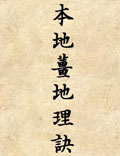 本地薑地理訣